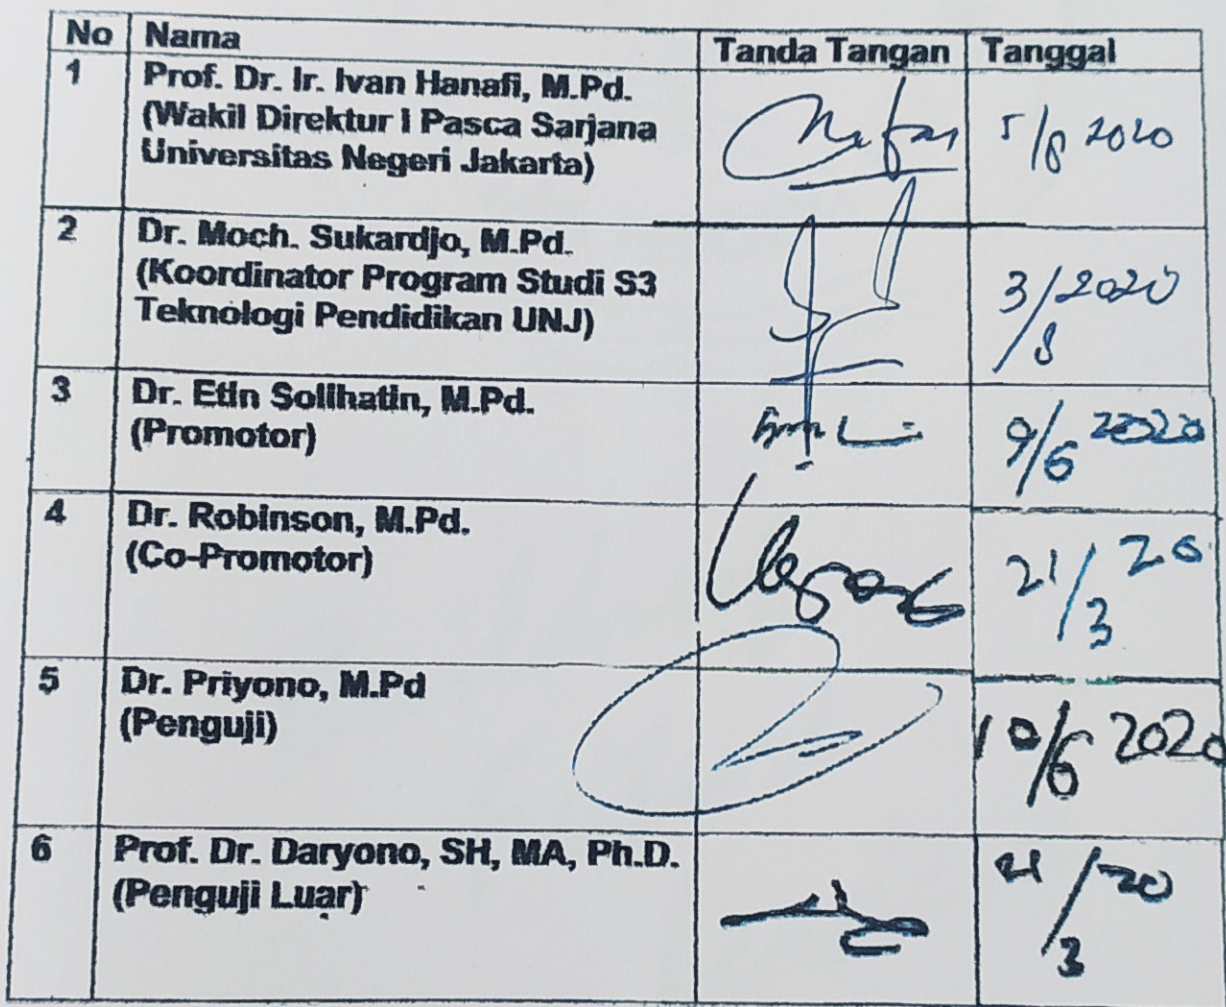 No Nama Tanda Tangan Tanggal
1 Prof. Dr. Ir. Ivan Hanafi, M.Pd.
(Wakil Direktur I Pasca Sarjana
Universitas Negeri Jakarta)
5/8 2020
2 Dr. Moch. Sukardjo, M.Pd.
(Koordinator Program Studi S3
Teknologi Pendidikan UNJ)
3/8 2020
3 Dr. Etin Solihatin, M.Pd.
(Promotor)
9/6 2020
4 Dr. Robinson, M.Pd.
(Co-Promotor)
21/3 20
5 Dr. Priyono, M.Pd
(Penguji)
10/6 2020
6 Prof. Dr. Daryono, SH, MA, Ph.D.
(Penguji Luar)
21/3 20